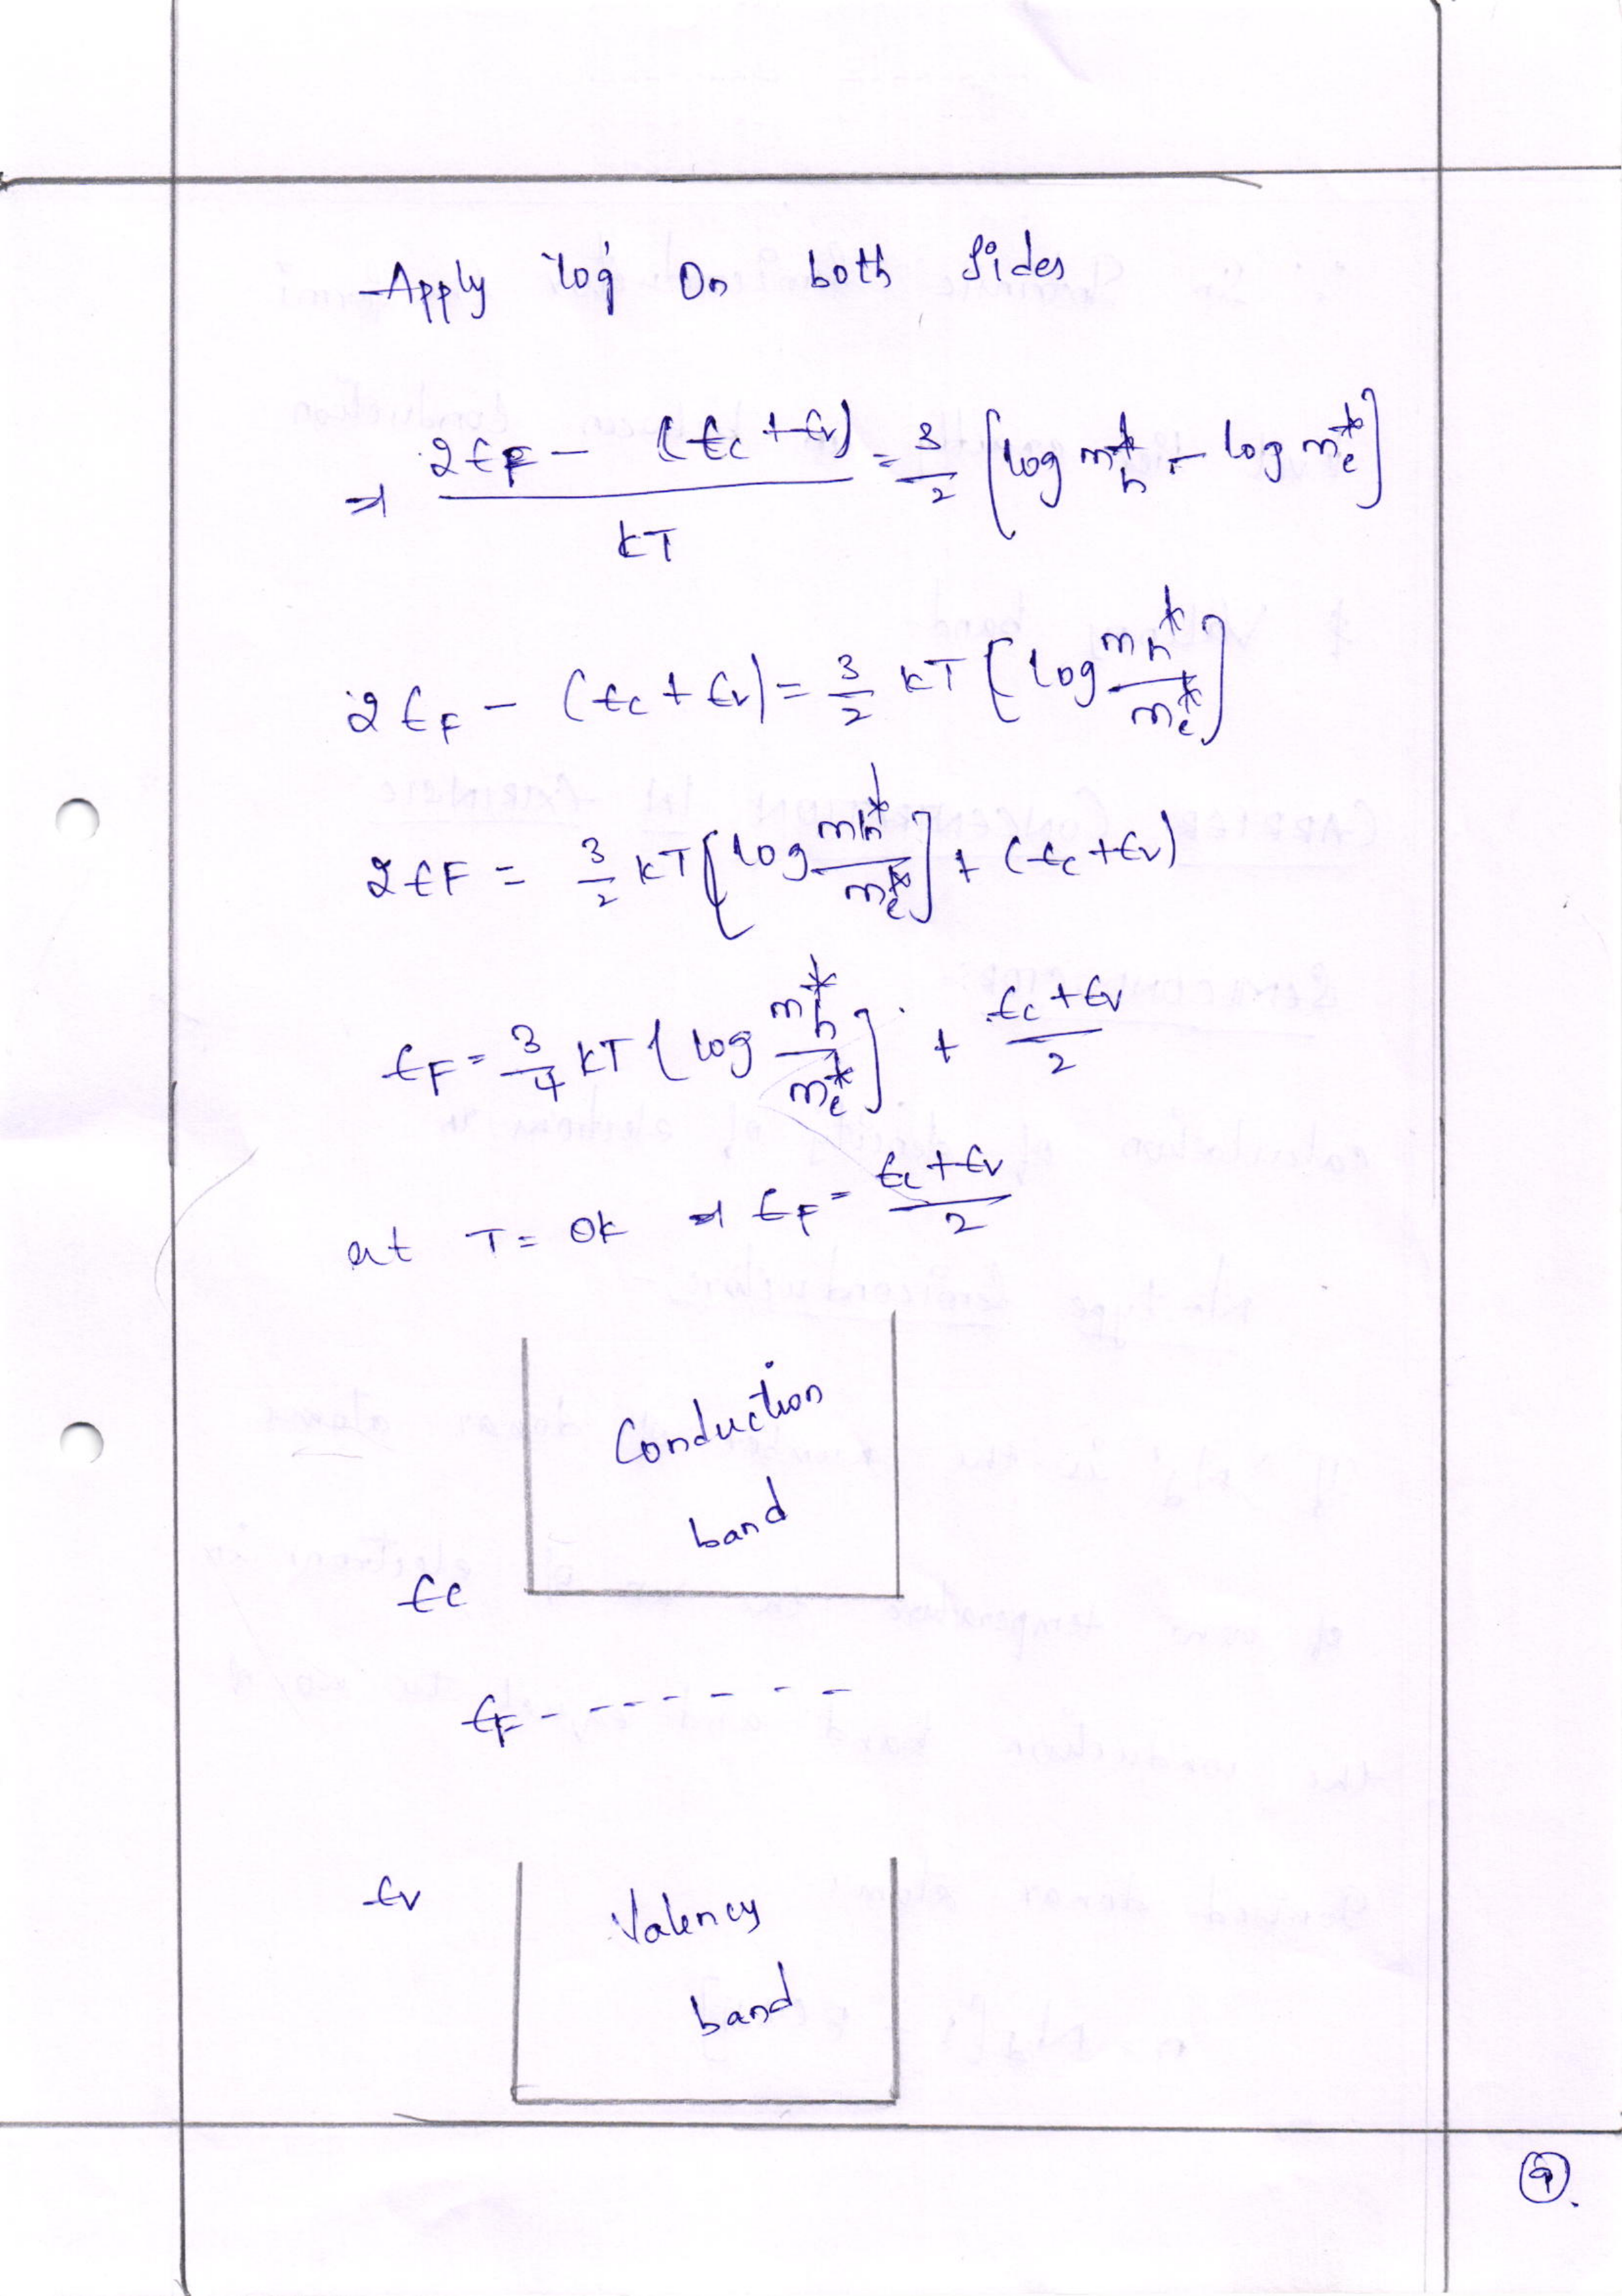 Apply 'log' On both Sides
⇒ 2EF − (Ec + Ev) / kT = 3/2 [log m*h − log m*e]
2EF − (Ec + Ev) = 3/2 kT [log mh* / me*]
2EF = 3/2 kT [log mh* / me*] + (Ec + Ev)
EF = 3/4 kT [log m*h / me*] + Ec + Ev / 2
at T = 0k ⇒ EF = Ec + Ev / 2
Conduction
band
Ec
EF - - - - - - - -
Ev
Valency
band
9.